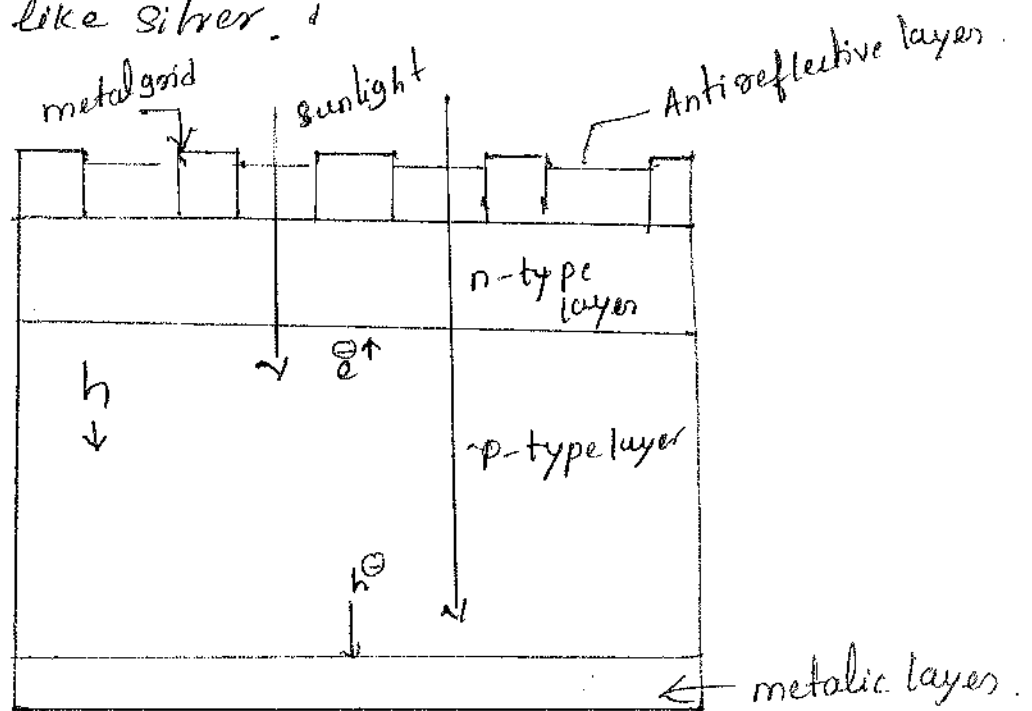 like silver.
metal grid
sunlight
Antireflective layer.
n-type
layer
⊖
e ↑
h
↓
p-type layer
h⊖
metalic layer.